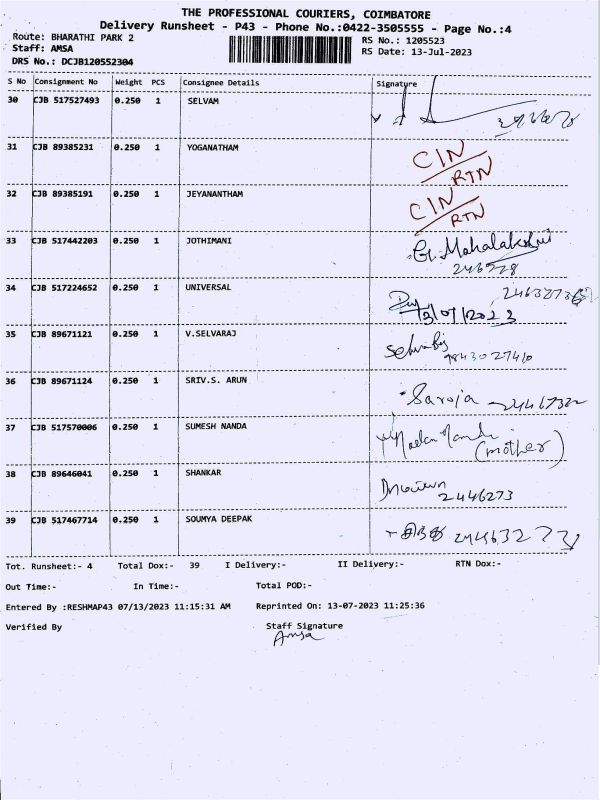 THE PROFESSIONAL COURIERS, COIMBATORE
Delivery Runsheet - P43 - Phone No.:0422-3505555 - Page No.:4
Route: BHARATHI PARK 2 RS No.: 1205523
Staff: AMSA RS Date: 13-Jul-2023
DRS No.: DCJB120552304
S No Consignment No Weight PCS Consignee Details Signature
30 CJB 517527493 0.250 1 SELVAM
31 CJB 89385231 0.250 1 YOGANATHAM CIN
RTN
32 CJB 89385191 0.250 1 JEYANANTHAM CIN
RTN
33 CJB 517442203 0.250 1 JOTHIMANI G. Mahalakshmi
246928
34 CJB 517224652 0.250 1 UNIVERSAL
13/07/2023
35 CJB 89671121 0.250 1 V.SELVARAJ
9843027410
36 CJB 89671124 0.250 1 SRIV.S. ARUN Saroja
37 CJB 517570006 0.250 1 SUMESH NANDA
(mother)
38 CJB 89646041 0.250 1 SHANKAR
2446273
39 CJB 517467714 0.250 1 SOUMYA DEEPAK
Tot. Runsheet:- 4 Total Dox:- 39 I Delivery:- II Delivery:- RTN Dox:-
Out Time:- In Time:- Total POD:-
Entered By :RESHMAP43 07/13/2023 11:15:31 AM Reprinted On: 13-07-2023 11:25:36
Verified By Staff Signature
Amsa